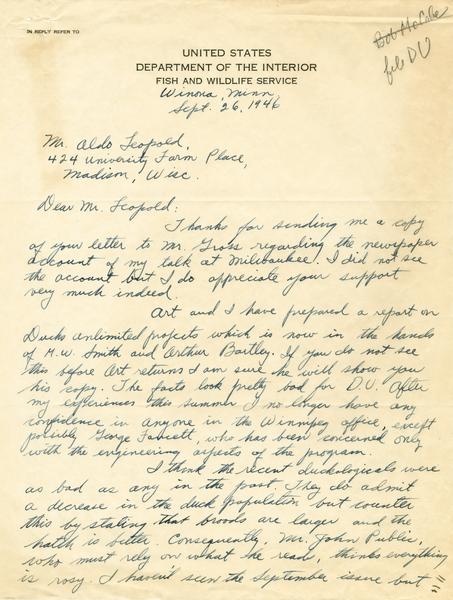 IN REPLY REFER TO
Bob McCabe
file DU
UNITED STATES
DEPARTMENT OF THE INTERIOR
FISH AND WILDLIFE SERVICE
Winona, Minn.
Sept. 26, 1946
Mr. Aldo Leopold,
424 University Farm Place,
Madison, Wisc.
Dear Mr. Leopold:
Thanks for sending me a copy
of your letter to Mr. Gross regarding the newspaper
account of my talk at Milwaukee. I did not see
the account but I do appreciate your support
very much indeed.
Art and I have prepared a report on
Ducks Unlimited projects which is now in the hands
of M.W. Smith and Arthur Bartley. If you do not see
this before Art returns I am sure he will show you
his copy. The facts look pretty bad for D.U. After
my experiences this summer I no longer have any
confidence in anyone in the Winnipeg office, except
possibly George Fawcett, who has been concerned only
with the engineering aspects of the program.
I think the recent duckologicals were
as bad as any in the past. They do admit
a decrease in the duck population but counter
this by stating that broods are larger and the
hatch is better. Consequently, Mr. John Public,
who must rely on what he read, thinks everything
is rosy. I haven't seen the September issue but